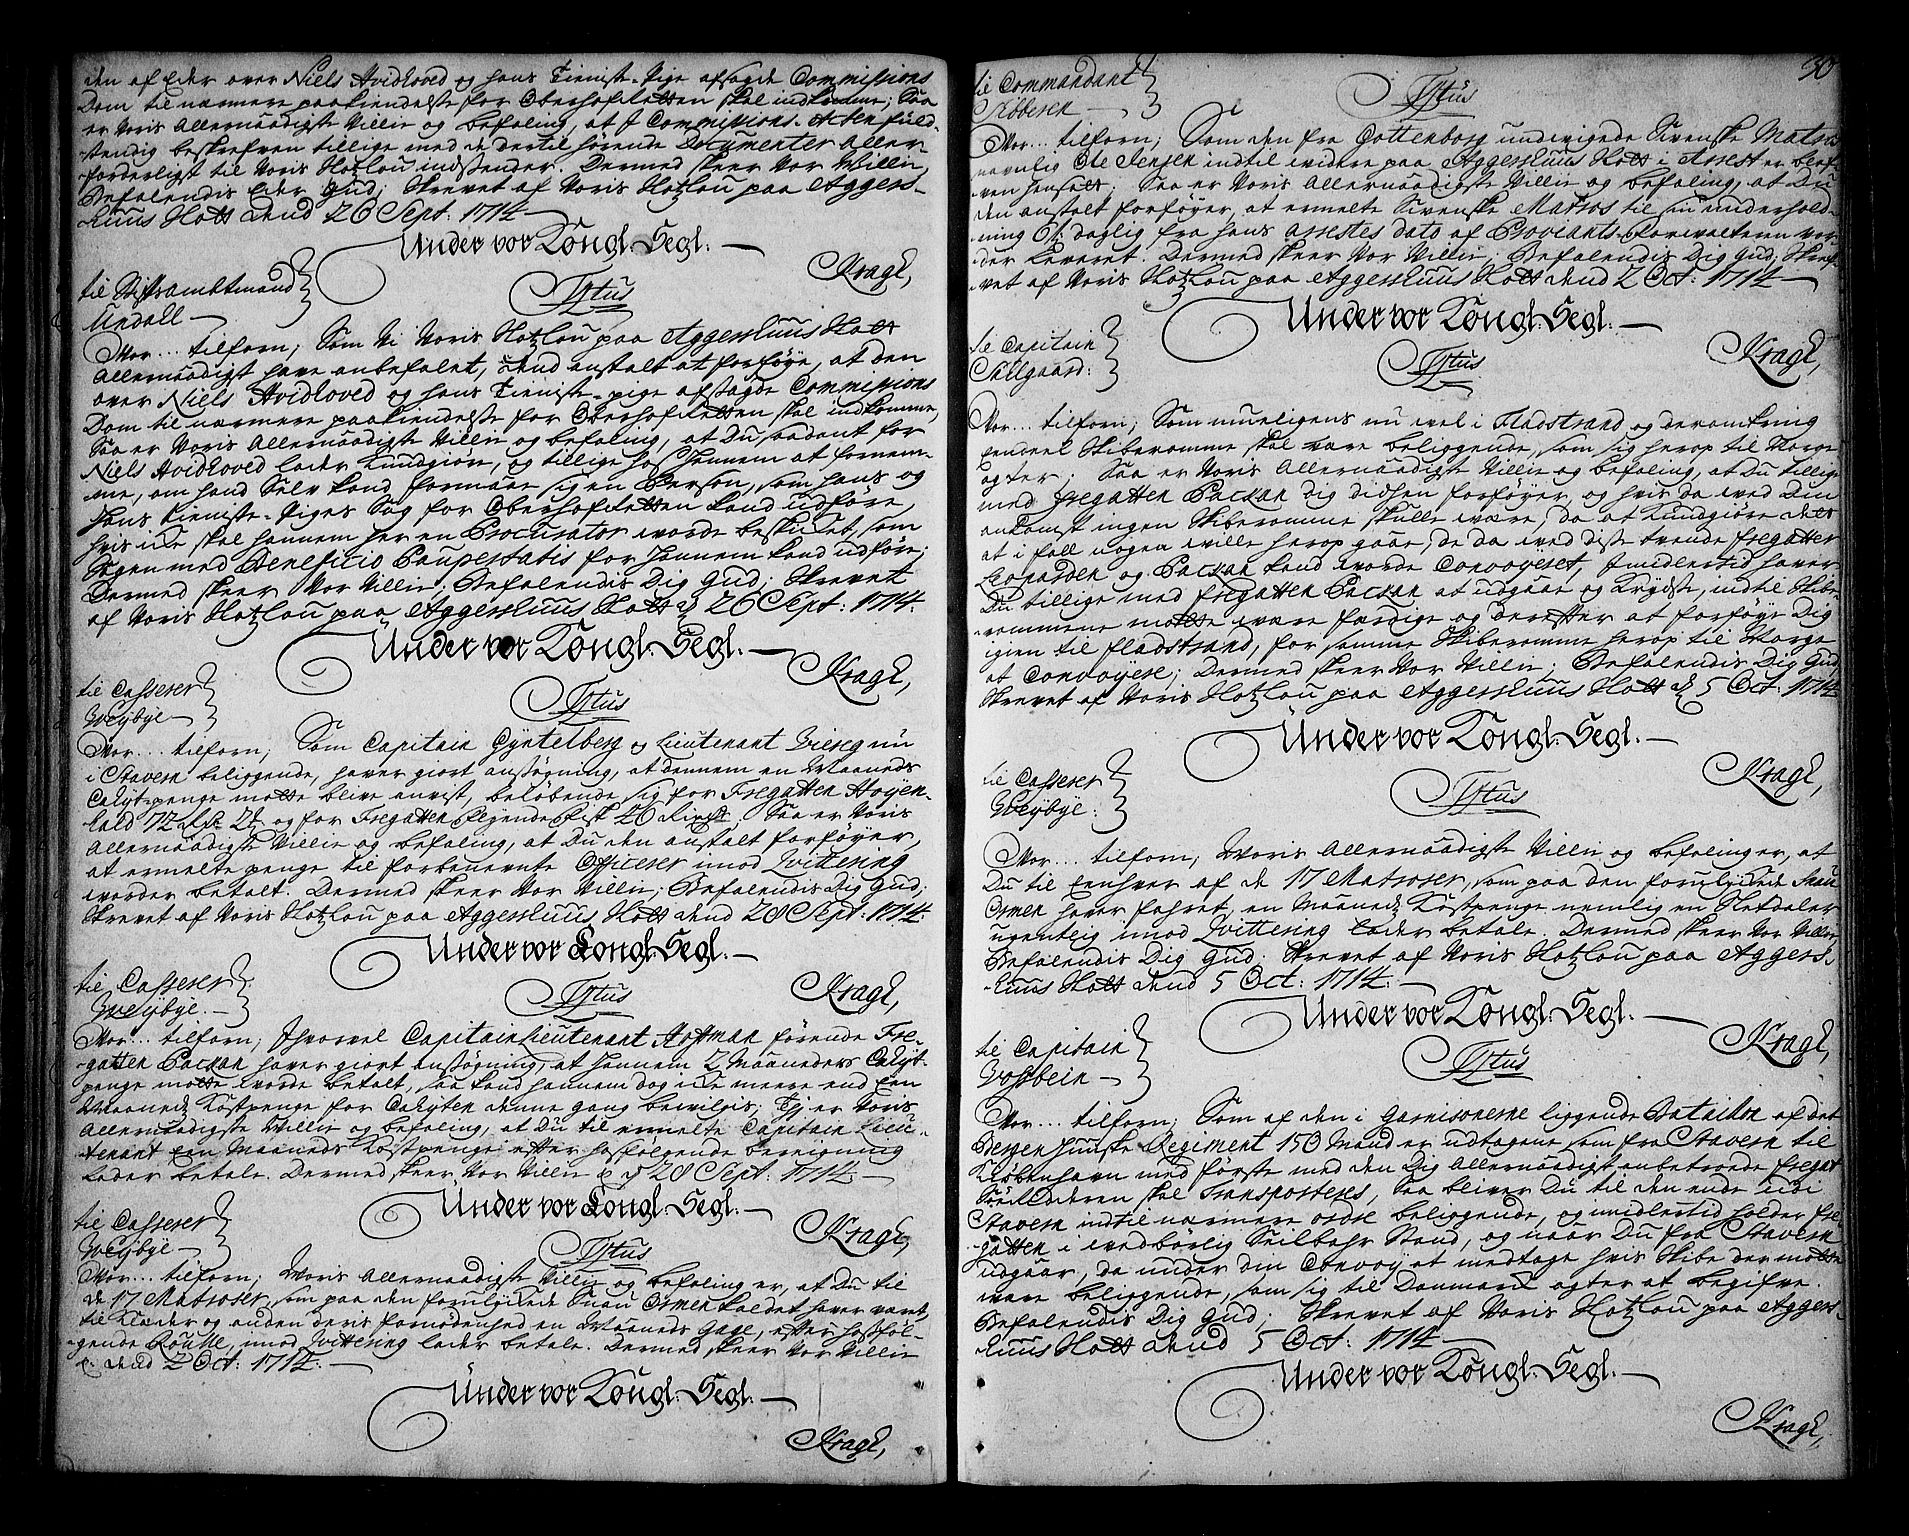 den af Eder over Niels Hvidloved og hans Tieniste-Pige afsagde Commissions
Dom til nærmere paakiendelse for Oberhofretten skal indkomme; Saa
er Voris Allernaadigste Villie og befaling, at I Commissions-Acten fuld-
stendig beskrefven tillige med de dertil hørende Documenter aller-
forderligst til Voris Slotzlou indsender. Dermed skeer Vor Villie,
Befalendis Eder Gud; Skrevet af Voris Slotzlou paa Aggers-
huus Slott dend 26 Sept: 1714.
Under vor Kongl. Segl.
Kragh,
til Stiftsambtmand
Undall
Titus
Vor... tilforn; Som Vi Voris Slotzlou paa Aggershuus Slott
Allernaadigst have anbefalet, dend anstalt at forføye, at den
over Niels Hvidloved og hans Tieniste-pige afsagde Commissions
Dom til nærmere paakiendelse for Oberhofretten skal indkomme,
Saa er Voris Allernaadigste Villie og befaling, at Du saadant for
Niels Hvidloved lader kundgiøre, og tillige hos hannem at fornem-
me, om hand Selv kand formaae sig en Person, som hans og
hans Tieniste-Piges Sag for Oberhofretten kand udføre,
hvis icke skal hannem her en Procurator worde beskicket, som
Sagen med Beneficio Paupertatis for hannem kand udføre;
Dermed skeer Vor Villie; Befalendis Dig Gud; Skrevet
af Voris Slotzlou paa Aggershuus Slott d 26 Sept: 1714.
Under vor Kongl. Segl.
Kragh,
til Casserer
Weybye
Titus
Vor... tilforn; Som Capitain Gyntelberg og Lieutenant nu
i Stavern beliggende, haver giort ansøgning, at dennem en Maaneds
penge motte blive anvist, beløbende sig for Fregatten Høyen-
hald 72 og for Fregatten flyvende Fisk 26. Saa er Voris
Allernaadigste Villie og befaling, at Du den anstalt forføyer,
at ermelte penge til forbenevnte Officerer imod Qvittering
worder betalt. Dermed skeer Vor Villie; Befalendis Dig Gud;
Skrevet af Voris Slotzlou paa Aggershuus Slott dend 28 Sept: 1714.
Under vor Kongl. Segl.
Kragh,
til Casserer
Weybye.
Titus
Vor... tilforn; Ihvorvel Capitain Lieutenant Hoffman førende Fre-
gatten Pacxan haver giort ansøgning, at hannem 2 Maaneders
penge motte worde betalt, saa kand hannem dog icke meere end Een
Maaneds Kostpenge for denne gang bevilgis; Thj er Voris
Allernaadigste Villie og befaling, at Du til ermelte Capitain Lieu-
tenant Een Maaneds Kostpenge efter hosfølgende beregning
lader betale. Dermed skeer Vor Villie d 28 Sept: 1714.
Under vor Kongl. Segl.
Kragh,
til Casserer
Weybye
Titus
Vor... tilforn; Voris Allernaadigste Villie og befaling er, at Du til
de 17 Matroser, som paa den forulyckede Snau Ormen kaldet haver været
til Klæder og anden deris fornødenhed en Maaneds Gage, efter hosføl-
gende Roulle, imod Qvittering lader betale. Dermed skeer Vor Villie
dend 2 Oct: 1714.
Under vor Kongl. Segl.
Kragh,
30
til Commandant
Titus
Vor... tilforn; Som den fra Gottenborg undwigede Svenske Matros
navnlig Ole Jensen indtil widere paa Aggershuus Slott i Arrest er blef-
ven hensatt; Saa er Voris Allernaadigste Villie og befaling, at Du
den anstalt forføyer, at ermelte Svenske Matros til sin underhold-
ning daglig fra hans arrestes dato af Proviants-forwalteren wor-
der leveret. Dermed skeer Vor Villie; Befalendis Dig Gud; Skre-
vet af Voris Slotzlou paa Aggershuus Slott dend 2 Oct: 1714
Under vor Kongl. Segl.
Kragh,
til Capitain
Titus
Vor... tilforn; Som mueligens nu wel i Fladstrand og deromkring
eendeel Skiberomme skal være beliggende, som sig herop til Norge
agter; Saa er Voris Allernaadigste Villie og befaling, at Du tillige
med Fregatten Pacxan dig didhen forføyer, og hvis da wed Din
ankomst ingen Skiberomme skulle være, da at kundgiøre dett
at i fall nogen wille herop gaae, de da wed disse tvende Fregatter
Leoparden og Pacxan kand worde Convoyeret, Imidlertid haver
Du tillige med Fregatten Pacxan at udgaae og Krydse, indtil Skibe-
rommene motte være færdige og derefter at forføye Dig
igien til Fladstrand, for samme Skiberomme herop til Norge
at Convoyere; Dermed skeer Vor Villie; Befalendis Dig Gud,
Skrevet af Voris Slotzlou paa Aggershuus Slott d 5 Oct: 1714.
Under vor Kongl. Segl.
Kragh,
til Casserer
Weybye.
Titus
Vor... tilforn; Voris Allernaadigste Villie og befaling er, at
Du til Eenhver af de 17 Matroser, som paa den forulyckede Snau
Ormen haver fahret, en Maaneds Kostpenge nemlig en Sletdaler
ugentlig imod Qvittering lader betale. Dermed skeer Vor Villie,
Befalendis Dig Gud; Skrevet af Voris Slotzlou paa Aggers-
huus Slott dend 5 Oct: 1714.
Under vor Kongl. Segl.
Kragh,
til Capitain
Vosbein
Titus
Vor... tilforn; Som af den i Garnisonerne liggende Bataillon af det
Bergenhuuske Regiment 150 Mand er udtagene som fra Stavern til
Kiøbenhavn med første med den Dig Allernaadigst anbetroede Fregat
Søe skal Transporteres, Saa bliver Du til den ende udi
Stavern indtil nærmere ordre beliggende, og imidlertid holder fre-
gatten i wedbørlig Seilbahr Stand, og naar Du fra Stavern
udgaar, da under din Convoy at medtage hvis Skibe der motte
være beliggende, som sig til Danmarck agter at begifve.
Befalendis Dig Gud; Skrevet af Voris Slotzlou paa Aggers-
huus Slott dend 5 Oct: 1714
Under vor Kongl. Segl.
Kragh,